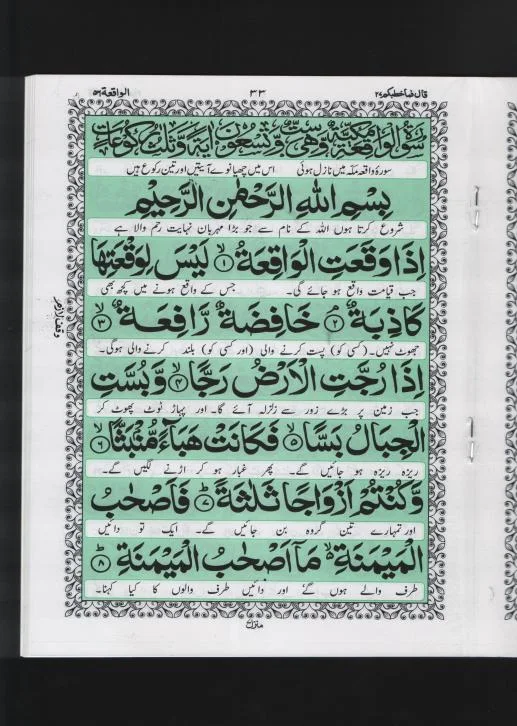 قال فما خطبكم ۲۷ ۳۳ الواقعة ۵۶
سُوْرَةُ الْوَاقِعَةِ مَكِّيَّةٌ وَّهِيَ سِتٌّ وَّتِسْعُوْنَ اٰيَةً وَّثَلٰثُ رُكُوْعَاتٍ
سورۂ واقعہ مکہ میں نازل ہوئی اس میں چھیانوے آیتیں اور تین رکوع ہیں
بِسْمِ اللّٰهِ الرَّحْمٰنِ الرَّحِيْمِ
شروع کرتا ہوں اللہ کے نام سے جو بڑا مہربان نہایت رحم والا ہے
اِذَا وَقَعَتِ الْوَاقِعَةُ ۙ۱ لَيْسَ لِوَقْعَتِهَا
جب قیامت واقع ہو جائے گی۔ جس کے واقع ہونے میں کچھ بھی
كَاذِبَةٌ ۘ۲ خَافِضَةٌ رَّافِعَةٌ ۙ۳
جھوٹ نہیں۔ (کسی کو) پست کرنے والی (اور کسی کو) بلند کرنے والی ہوگی۔
اِذَا رُجَّتِ الْاَرْضُ رَجًّا ۙ۴ وَّبُسَّتِ
جب زمین پر بڑے زور سے زلزلہ آئے گا۔ اور پہاڑ ٹوٹ پھوٹ کر
الْجِبَالُ بَسًّا ۙ۵ فَكَانَتْ هَبَآءً مُّنْۢبَثًّا ۙ۶
ریزہ ریزہ ہو جائیں گے۔ پھر غبار ہو کر اڑنے لگیں گے۔
وَّكُنْتُمْ اَزْوَاجًا ثَلٰثَةً ؕ۷ فَاَصْحٰبُ
اور تمہارے تین گروہ بن جائیں گے۔ ایک تو دائیں
الْمَيْمَنَةِ ۙ۬ مَاۤ اَصْحٰبُ الْمَيْمَنَةِ ؕ۸
طرف والے ہوں گے اور دائیں طرف والوں کا کیا کہنا۔
منزل
وقف لازم